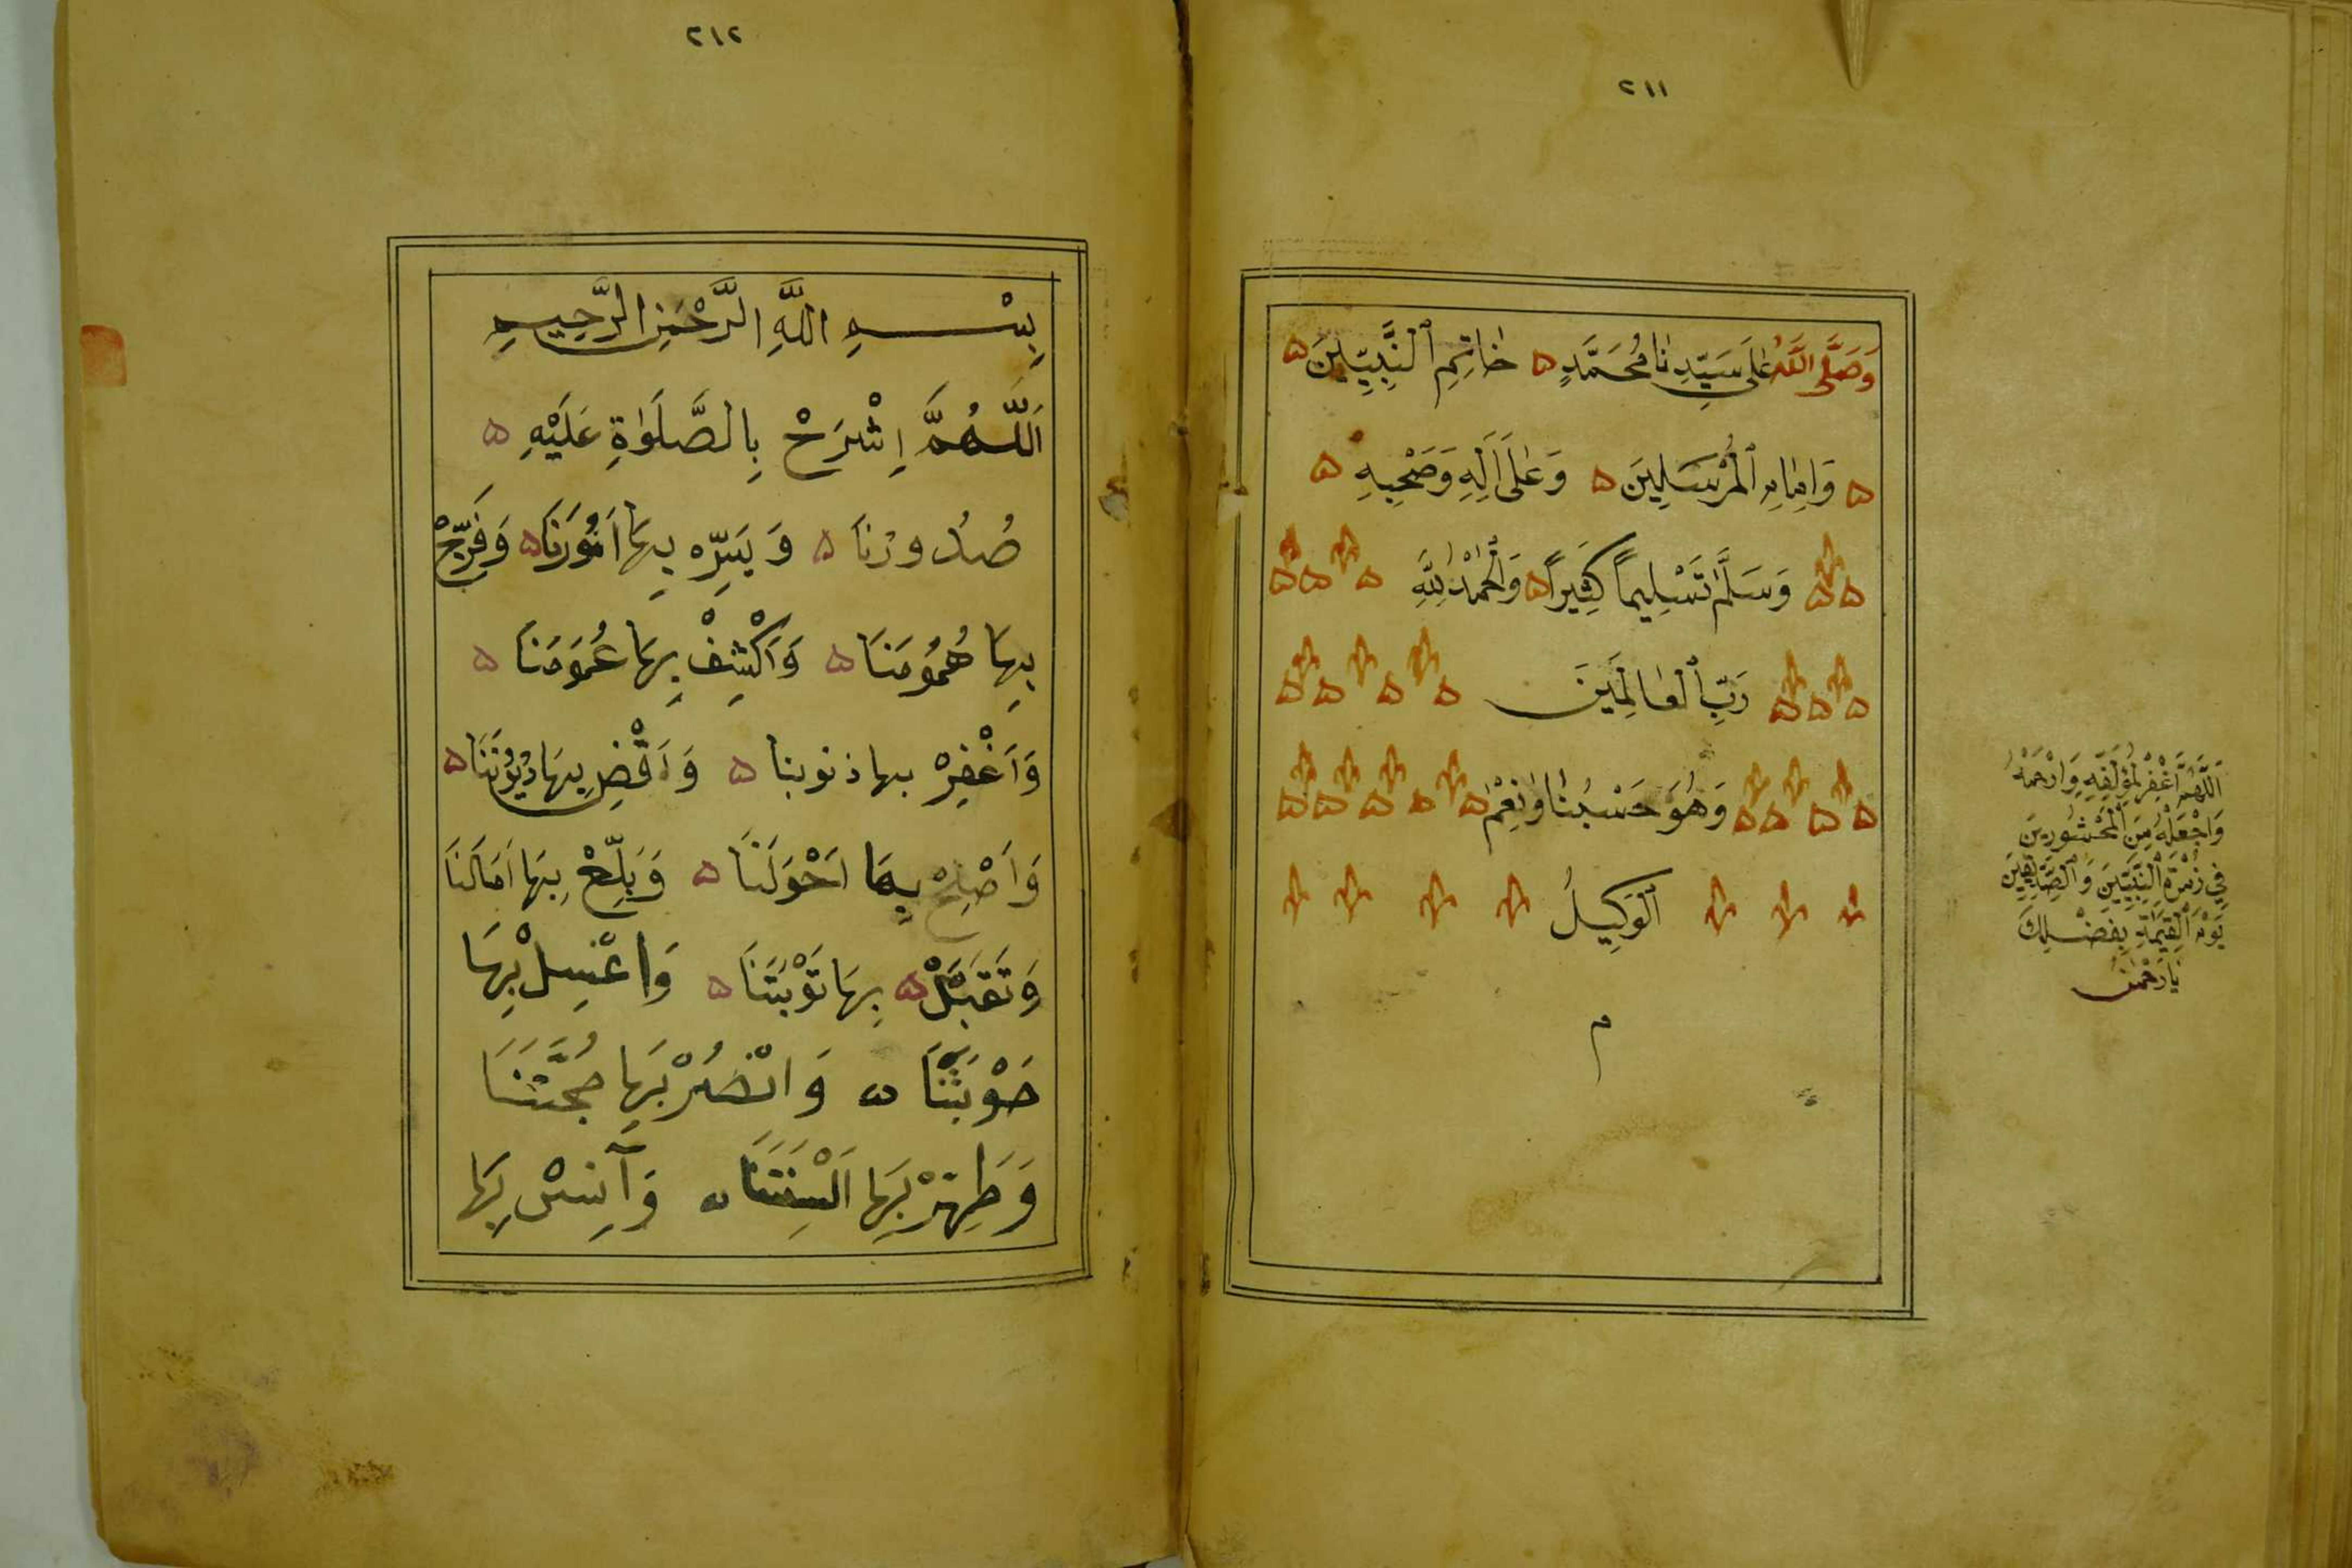 ٢١١
وَصَلَّى اللَّهُ عَلَى سَيِّدِنَا مُحَمَّدٍ ۵ خَاتِمِ ٱلنَّبِيِّينَ ۵
۵ وَإِمَامِ ٱلْمُرْسَلِينَ ۵ وَعَلَى اَلِهِ وَصَحْبِهِ ۵
وَسَلَّمَ تَسْلِيماً كَثِيَراً ۵ وَالْحَمْدُ لِلَّهِ
رَبِّ ٱلْعَالَمِينَ
وَهُوَ حَسْبُنَا وَنِعْمَ
ٱلْوَكِيلُ
م
اَللَّهُمَّ اغْفِرْ لِمُؤَلِّفِهِ وَارْحَمْهُ
وَاجْعَلْهُ مِنَ الْمَحْشُورِينَ
فِي زُمْرَةِ النَّبِيِّينَ وَالصِّدِّيقِينَ
يَوْمَ الْقِيَمَةِ بِفَضْلِكَ
يَا رَحْمَنُ
٢١٢
بِسْمِ اللَّهِ الرَّحْمَنِ الرَّحِيمِ
اَللَّهُمَّ اِشْرَحْ بِالصَّلَوٰةِ عَلَيْهِ ۵
صُدُورَنَا ۵ وَيَسِّرْ بِهَا اُمُورَنَا ۵ وَفَرِّجْ
بِهَا هُمُوُمَنَا ۵ وَاَكْشِفْ بِهَا غُمُوَمَنَا ۵
وَاَغْفِرْ بها ذنوبنا ۵ وَاَقْضِ بِهَا دُيُوُنَنَا ۵
وَاَصْلِحْ بِهَا اَحْوَلَنَا ۵ وَبَلِّغْ بِهَا اَمَالَنَا
وَتَقَبَّلْ ۵ بِهَا تَوْبَتَنَا ۵ وَاغْسِلْ بِهَا
حَوْبَتَنَا ۵ وَانْصُرْ بِهَا حُجَّتَنَا
وَطَهِّرْ بِهَا اَلْسِنَتَنَا ۵ وَآنِسْ بِهَا